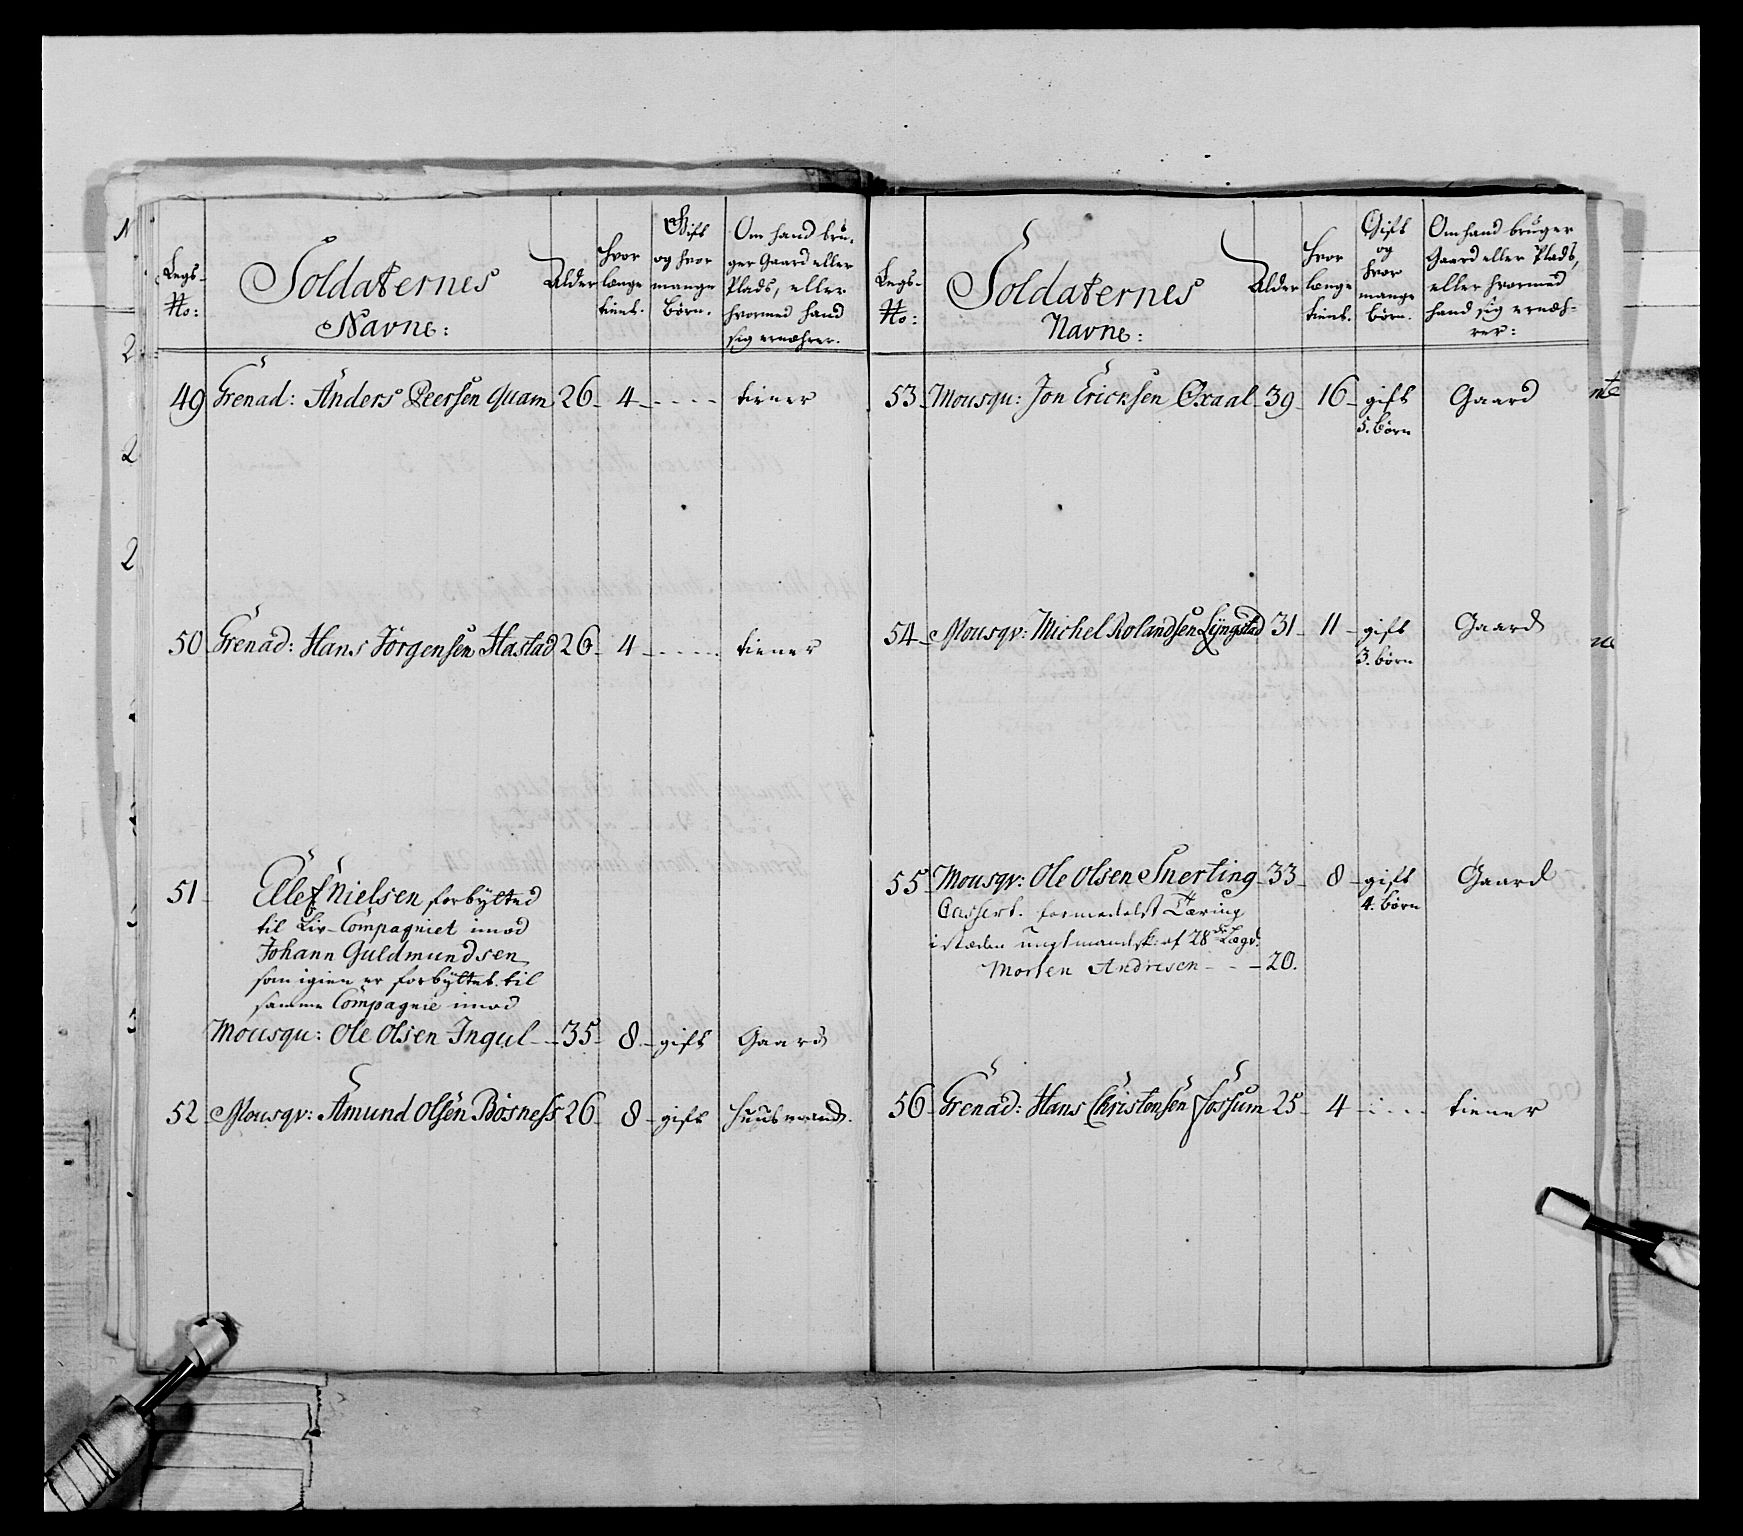 Legs-
No:
Soldaternes
Navne:
Alder
hvor
længe
tient.
Gift
og hvor
mange
børn.
Om hand bru-
ger Gaard eller
Plads, eller
hvormed hand
sig ernæhrer.
49 Grenad: Anders Peersen Quam 26 4 tiener
50 Grenad: Hans Jørgensen Hastad 26 4 tiener
51 Ellef Nielsen forbytted
til Liv-Compagniet imod
Johann Guldmundsen
som igien er forbyttet til
samme Compagnie imod
Mousqu: Ole Olsen Ingul 35 8 gift Gaard
52 Mousqv: Amund Olsen Bösness 26 8 gift huusmand.
Legs-
No:
Soldaternes
Navne:
Alder
hvor
længe
tient.
Gift
og
hvor
mange
børn.
Om hand bruger
Gaard eller Plads,
eller hvormed
hand sig ernæh-
rer:
53 Mousqu: Jon Ericksen Oxaal 39 16 gift Gaard
5. børn
54 Mousqv: Michel Rolandsen Lÿngstad 31 11 gift Gaard
3. børn
55 Mousqv: Ole Olsen Snerting 33 8 gift Gaard
4. børn
Cassert. formedelst Tæring
istæden ungt mandsk: af 28de Lægd.
Morten Andresen 20.
56 Grenad: Hans Christensen Fossum 25 4 tiener